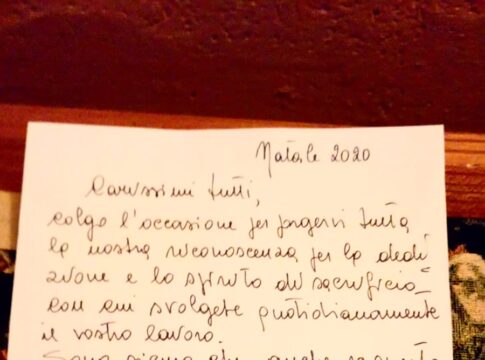 Natale 2020
Carissimi tutti,
colgo l'occasione per porgervi tutta
la nostra riconoscenza per la dedi=
zione e lo spirito di sacrificio
con cui svolgete quotidianamente
il vostro lavoro.
Sono che anche